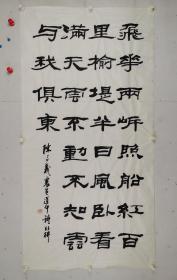 飛華兩岸照船紅百
里榆堤半日風臥看
滿天雲不動不知雲
与我俱東
陳与義襄邑道中詩